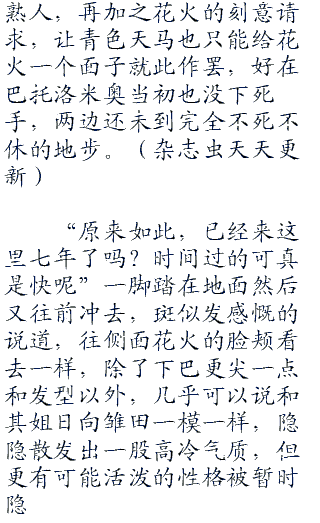 熟人，再加之花火的刻意请
求，让青色天马也只能给花
火一个面子就此作罢，好在
巴托洛米奥当初也没下死
手，两边还未到完全不死不
休的地步。（杂志虫天天更
新）
“原来如此，已经来这
里七年了吗？时间过的可真
是快呢”一脚踏在地面然后
又往前冲去，斑似发感慨的
说道，往侧面花火的脸颊看
去一样，除了下巴更尖一点
和发型以外，几乎可以说和
其姐日向雏田一模一样，隐
隐散发出一股高冷气质，但
更有可能活泼的性格被暂时
隐